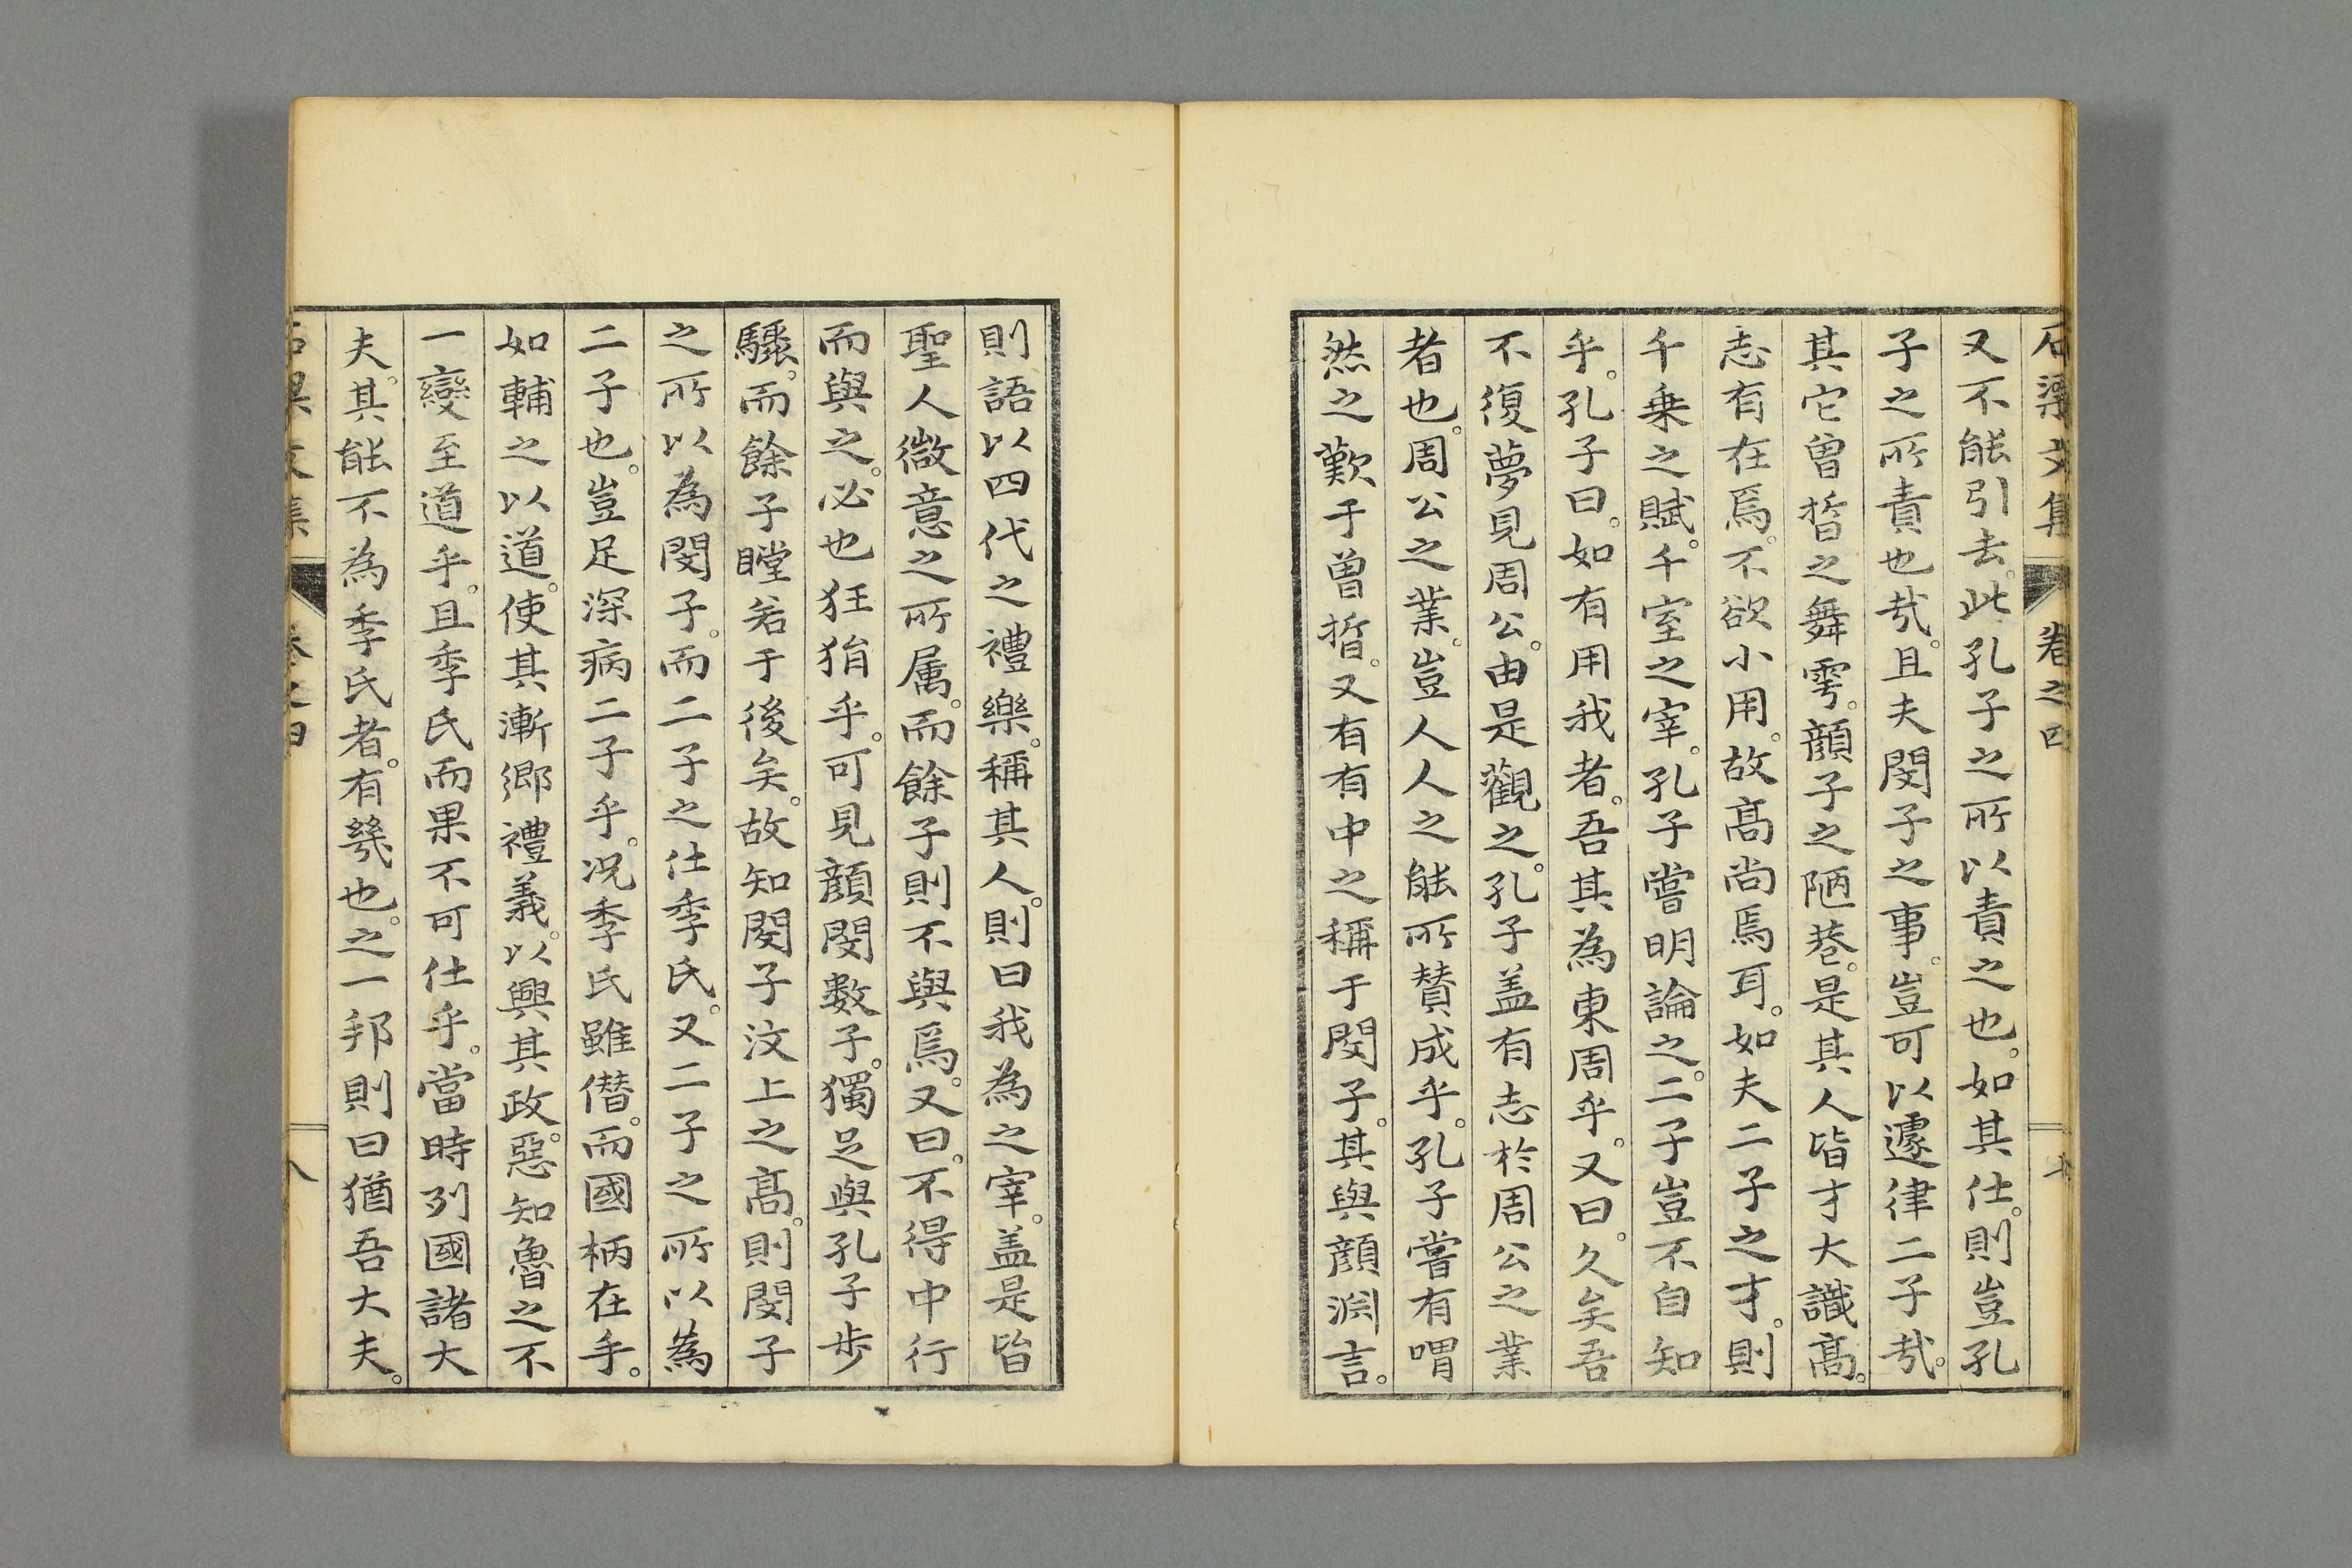 文集 卷之四
又不能引去。此孔子之所以責之也。如其仕。則豈孔
子之所責也哉。且夫閔子之事。豈可以遽律二子哉。
其它曾晳之舞雩。顏子之陋巷。是其人皆才大識高。
志有在焉。不欲小用。故高尚焉耳。如夫二子之才。則
千乗之賦。千室之宰。孔子嘗明論之。二子豈不自知
乎。孔子曰。如有用我者。吾其為東周乎。又曰。久矣吾
不復夢見周公。由是觀之。孔子盖有志於周公之業
者也。周公之業。豈人人之能所賛成乎。孔子嘗有喟
然之歎于曾晳。又有有中之稱于閔子。其與顏淵言。
則語以四代之禮樂。稱其人。則曰我為之宰。盖是皆
聖人微意之所属。而餘子則不與焉。又曰。不得中行
而與之。必也狂狷乎。可見顏閔數子。獨足與孔子步
驟。而餘子瞠若于後矣。故知閔子汶上之高。則閔子
之所以為閔子。而二子之仕季氏。又二子之所以為
二子也。豈足深病二子乎。况季氏雖僭。而國柄在手。
如輔之以道。使其漸鄉禮義。以興其政。惡知魯之不
一變至道乎。且季氏而果不可仕乎。當時列國諸大
夫。其能不為季氏者。有幾也。之一邦則曰猶吾大夫。
文集 卷之四 八